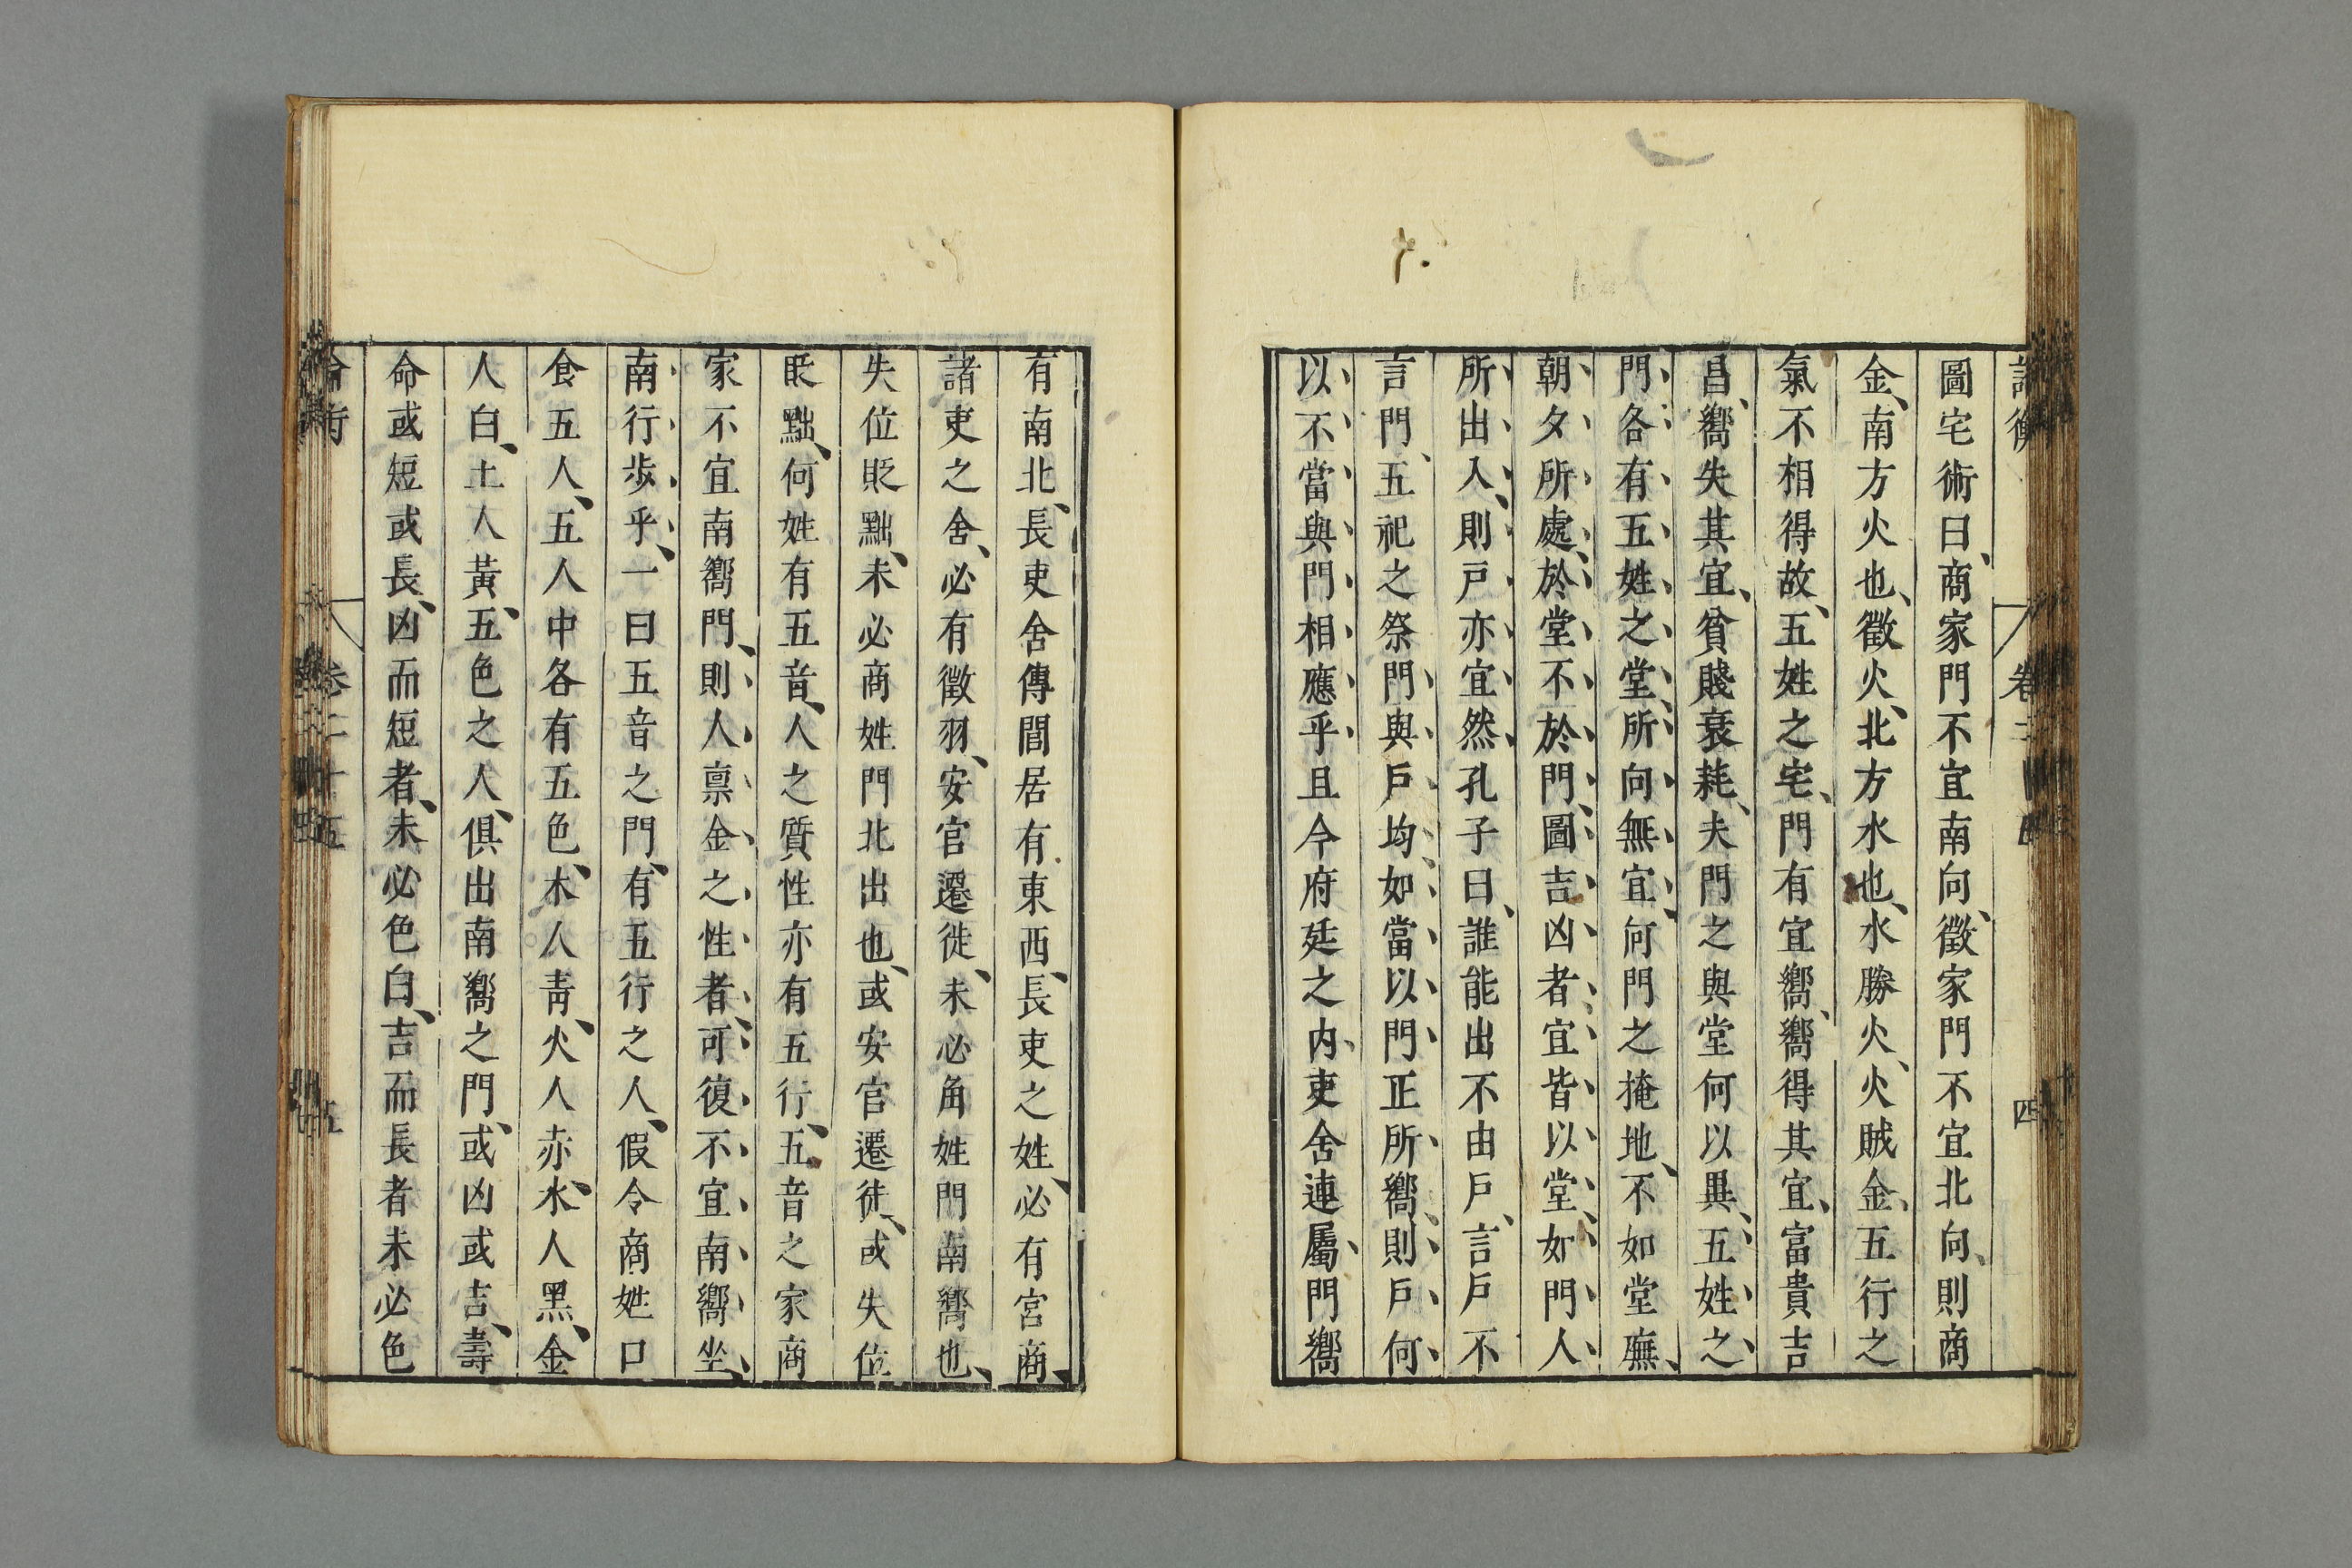 圖宅術曰、商家門不宜南向、徵家門不宜北向、則商
金、南方火也、徵火、北方水也、水勝火、火賊金、五行之
氣不相得、故五姓之宅、門有宜嚮、嚮得其宜、富貴吉
昌、嚮失其宜、貧賤衰耗、夫門之與堂何以異、五姓之
門、各有五姓之堂、所向無宜、何門之掩地、不如堂廡、
朝夕所處、於堂不於門、圖吉凶者、宜皆以堂、如門、人
所出入、則戸亦宜然、孔子曰、誰能出不由戸、言戸不
言門、五祀之祭、門與戸均、如當以門正所嚮、則戸何
以不當與門相應乎、且今府廷之内、吏舍連屬、門嚮
有南北、長吏舍傳、閭居有東西、長吏之姓、必有宮商、
諸吏之舍、必有徵羽、安官遷徙、未必角姓門南嚮也、
失位貶黜、未必商姓門北出也、或安官遷徙、或失位
貶黜、何姓有五音、人之質性亦有五行、五音之家、商
家不宜南嚮門、則人禀金之性者、可復不宜南嚮坐、
南行歩乎、一曰五音之門、有五行之人、假令商姓口
食五人、五人中各有五色、木人青、火人赤、水人黑、金
人白、土人黃、五色之人、俱出南嚮之門、或凶或吉、壽
命或短或長、凶而短者、未必色白、吉而長者未必色
卷二十五